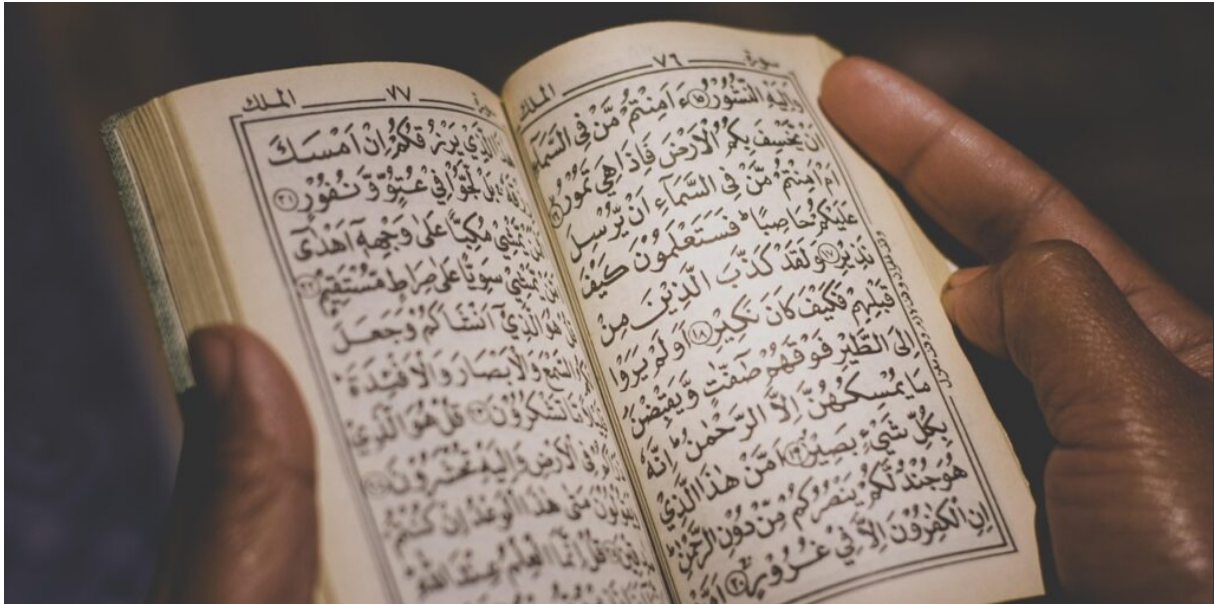 سورة ٧٦ الملك
وَاِلَيْهِ النُّشُوْرُ ۝١٥ ءَاَمِنْتُمْ مَّنْ فِي السَّمَآءِ
اَنْ يَّخْسِفَ بِكُمُ الْاَرْضَ فَاِذَا هِيَ تَمُوْرُ ۝١٦
اَمْ اَمِنْتُمْ مَّنْ فِي السَّمَآءِ اَنْ يُّرْسِلَ
عَلَيْكُمْ حَاصِبًا ؕ فَسَتَعْلَمُوْنَ كَيْفَ
نَذِيْرِ ۝١٧ وَلَقَدْ كَذَّبَ الَّذِيْنَ مِنْ
قَبْلِهِمْ فَكَيْفَ كَانَ نَكِيْرِ ۝١٨ اَوَلَمْ يَرَوْا
اِلَى الطَّيْرِ فَوْقَهُمْ صٰٓفّٰتٍ وَّيَقْبِضْنَ
مَا يُمْسِكُهُنَّ اِلَّا الرَّحْمٰنُ ؕ اِنَّهٗ
بِكُلِّ شَيْءٍ بَصِيْرٌ ۝١٩ اَمَّنْ هٰذَا الَّذِيْ
هُوَ جُنْدٌ لَّكُمْ يَنْصُرُكُمْ مِّنْ دُوْنِ الرَّحْمٰنِ ؕ
اِنِ الْكٰفِرُوْنَ اِلَّا فِيْ غُرُوْرٍ ۝٢٠ اَمَّنْ
٧٧ الملك
هٰذَا الَّذِيْ يَرْزُقُكُمْ اِنْ اَمْسَكَ
رِزْقَهٗ ۚ بَلْ لَّجُّوْا فِيْ عُتُوٍّ وَّنُفُوْرٍ ۝٢١
يَّمْشِيْ مُكِبًّا عَلٰى وَجْهِهٖٓ اَهْدٰٓى
يَّمْشِيْ سَوِيًّا عَلٰى صِرَاطٍ مُّسْتَقِيْمٍ ۝٢٢
هُوَ الَّذِيْٓ اَنْشَاَكُمْ وَجَعَلَ
لَكُمُ السَّمْعَ وَالْاَبْصَارَ وَالْاَفْـِٕدَةَ ؕ
مَّا تَشْكُرُوْنَ ۝٢٣ قُلْ هُوَ الَّذِيْ
فِي الْاَرْضِ وَاِلَيْهِ تُحْشَرُوْنَ ۝٢٤
وَيَقُوْلُوْنَ مَتٰى هٰذَا الْوَعْدُ اِنْ كُنْتُمْ
صٰدِقِيْنَ ۝٢٥ قُلْ اِنَّمَا الْعِلْمُ عِنْدَ اللّٰهِ